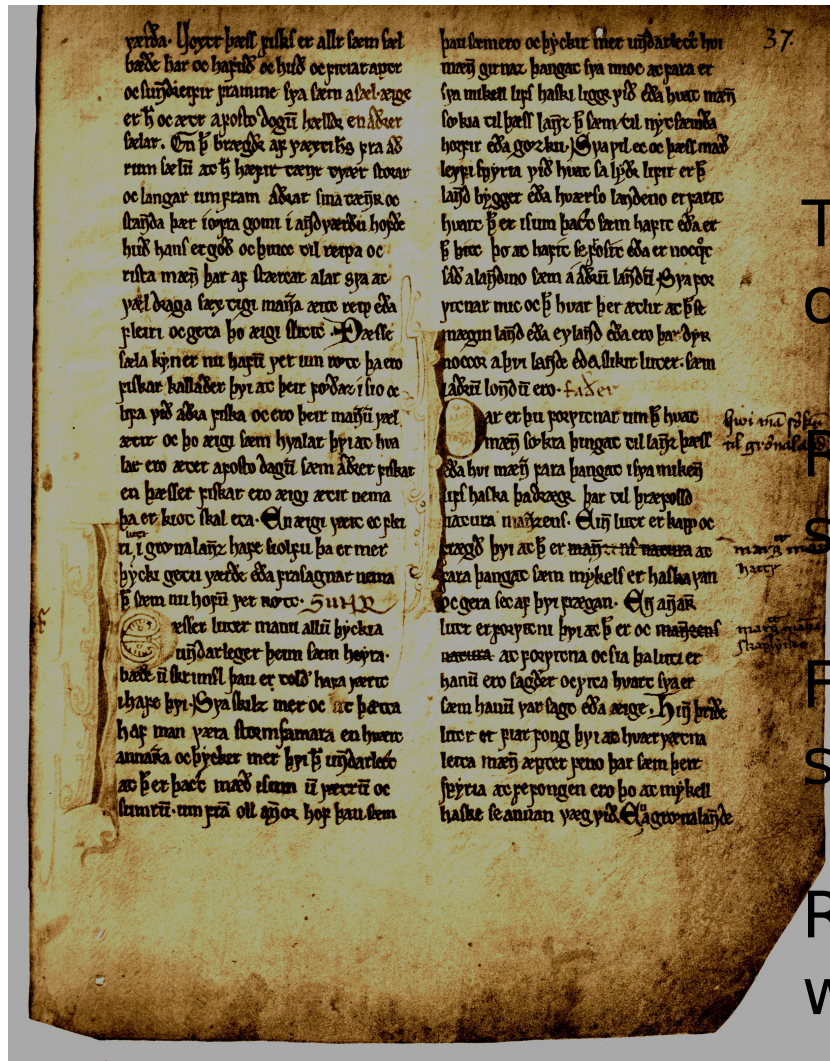 værða. Voxtr þæss fisks er allr sæm sæl
bæðe har oc hafuð oc huð oc fitiar aptr
oc framme sva sæm a sæl. æige
er h̅ oc ætr a fosto dagū hælldr en aðrer
sælar. En þ̅ brægðr af væxti h̅s fra að
rum sælū at h̅ hæfir tænr tvær storar
oc langar umfram aðrar sina tænn oc
standa þær i ofra gomi i andværðu hofðe
huð hans er goð oc til reipa oc
rista mæn þar af stærcar alar sva at
væl draga sæx tigi manna æitt reip eða
fleiri oc geta þo æigi slitit. Þæsse
sæla kyn er nu hafū vet um rott þa ero
fiskar kallaðer þvi at þeir foðaz i sio oc
lifa við aðra fiska oc ero þeir mannū væl
ætir oc þo æigi sæm hvalar þvi at hva
lar ero æter a fosto dagū sæm aðrer fiskar
en þæsser fiskar ero æigi ætir nema
þa er kiot skal eta. En æigi væit ec flei
ri lutir i grønalanz hafe þa er mer
þycki getu værðe eða frasagnar nema
þ̅ sæm nu hofū vet rott. SVNR
Þesser luter manu allū þyckia
undarleger þeim sæm høyra.
bæðe ū skrimsl þau er tolð hava værit
i hafe þvi. Sva skilz mer oc at þætta
haf man væra stormsamara en hvært
annara oc þycker mer þvi þ̅ undarlect
at þ̅ er þact mæð isum ū vættū oc
sumrū. umfrā oll onnor hof þau sæm
37.
þau sæm ero oc þyckir mer undarlect hvi
mæn girnaz þangat sva mioc at fara er
sva mikell lifs haski liggr við eða hvat mæn
sækia til þæss lanz þ̅ sæm til nytsæmða
horfir eða gozku. Sva vil ec oc þæss mæð
leyfi spyria við hvat sa lyðr lifir er þ̅
land bygger eða hværso landeno er farit
hvart þ̅ er isum þact sæm hafit eða er
þ̅ þitt þo at hafit se frosit eða er nocqt
sað a landino sæm a aðrū landū. Sva for
vitnar mic oc þ̅ hvat þer ætlit at þ̅ se
mægin land eða eyland eða ero þar dyr
noccor a þvi lande eða slikir luter. sæm
i aðrū londū ero. faðer
Þar er þu forvitnar um þ̅ hvat
mæn sækia þingat til lanz þæss
eða hvi mæn fara þangat i sva mikenn
lifs haska þa drægr þar til þræfolld
natura manzens. Ein lutr er kapp oc
frægð þvi at þ̅ er manzens natura at
fara þangat sæm mykels er haska van
oc gera sec af þvi frægan. En annar
lutr er forvitni þvi at þ̅ er oc manzens
natura at forvitna oc sia þa luti er
hanū ero sagðer oc vita hvart sva er
sæm hanū var sagt eða æige. Hin þriðe
lutr er fiar fong þvi at hværvætna
leita mæn æpter feno þar sæm þeir
spyria at fe fongen ero þo at mykell
haske se annan væg við. En a grønalande